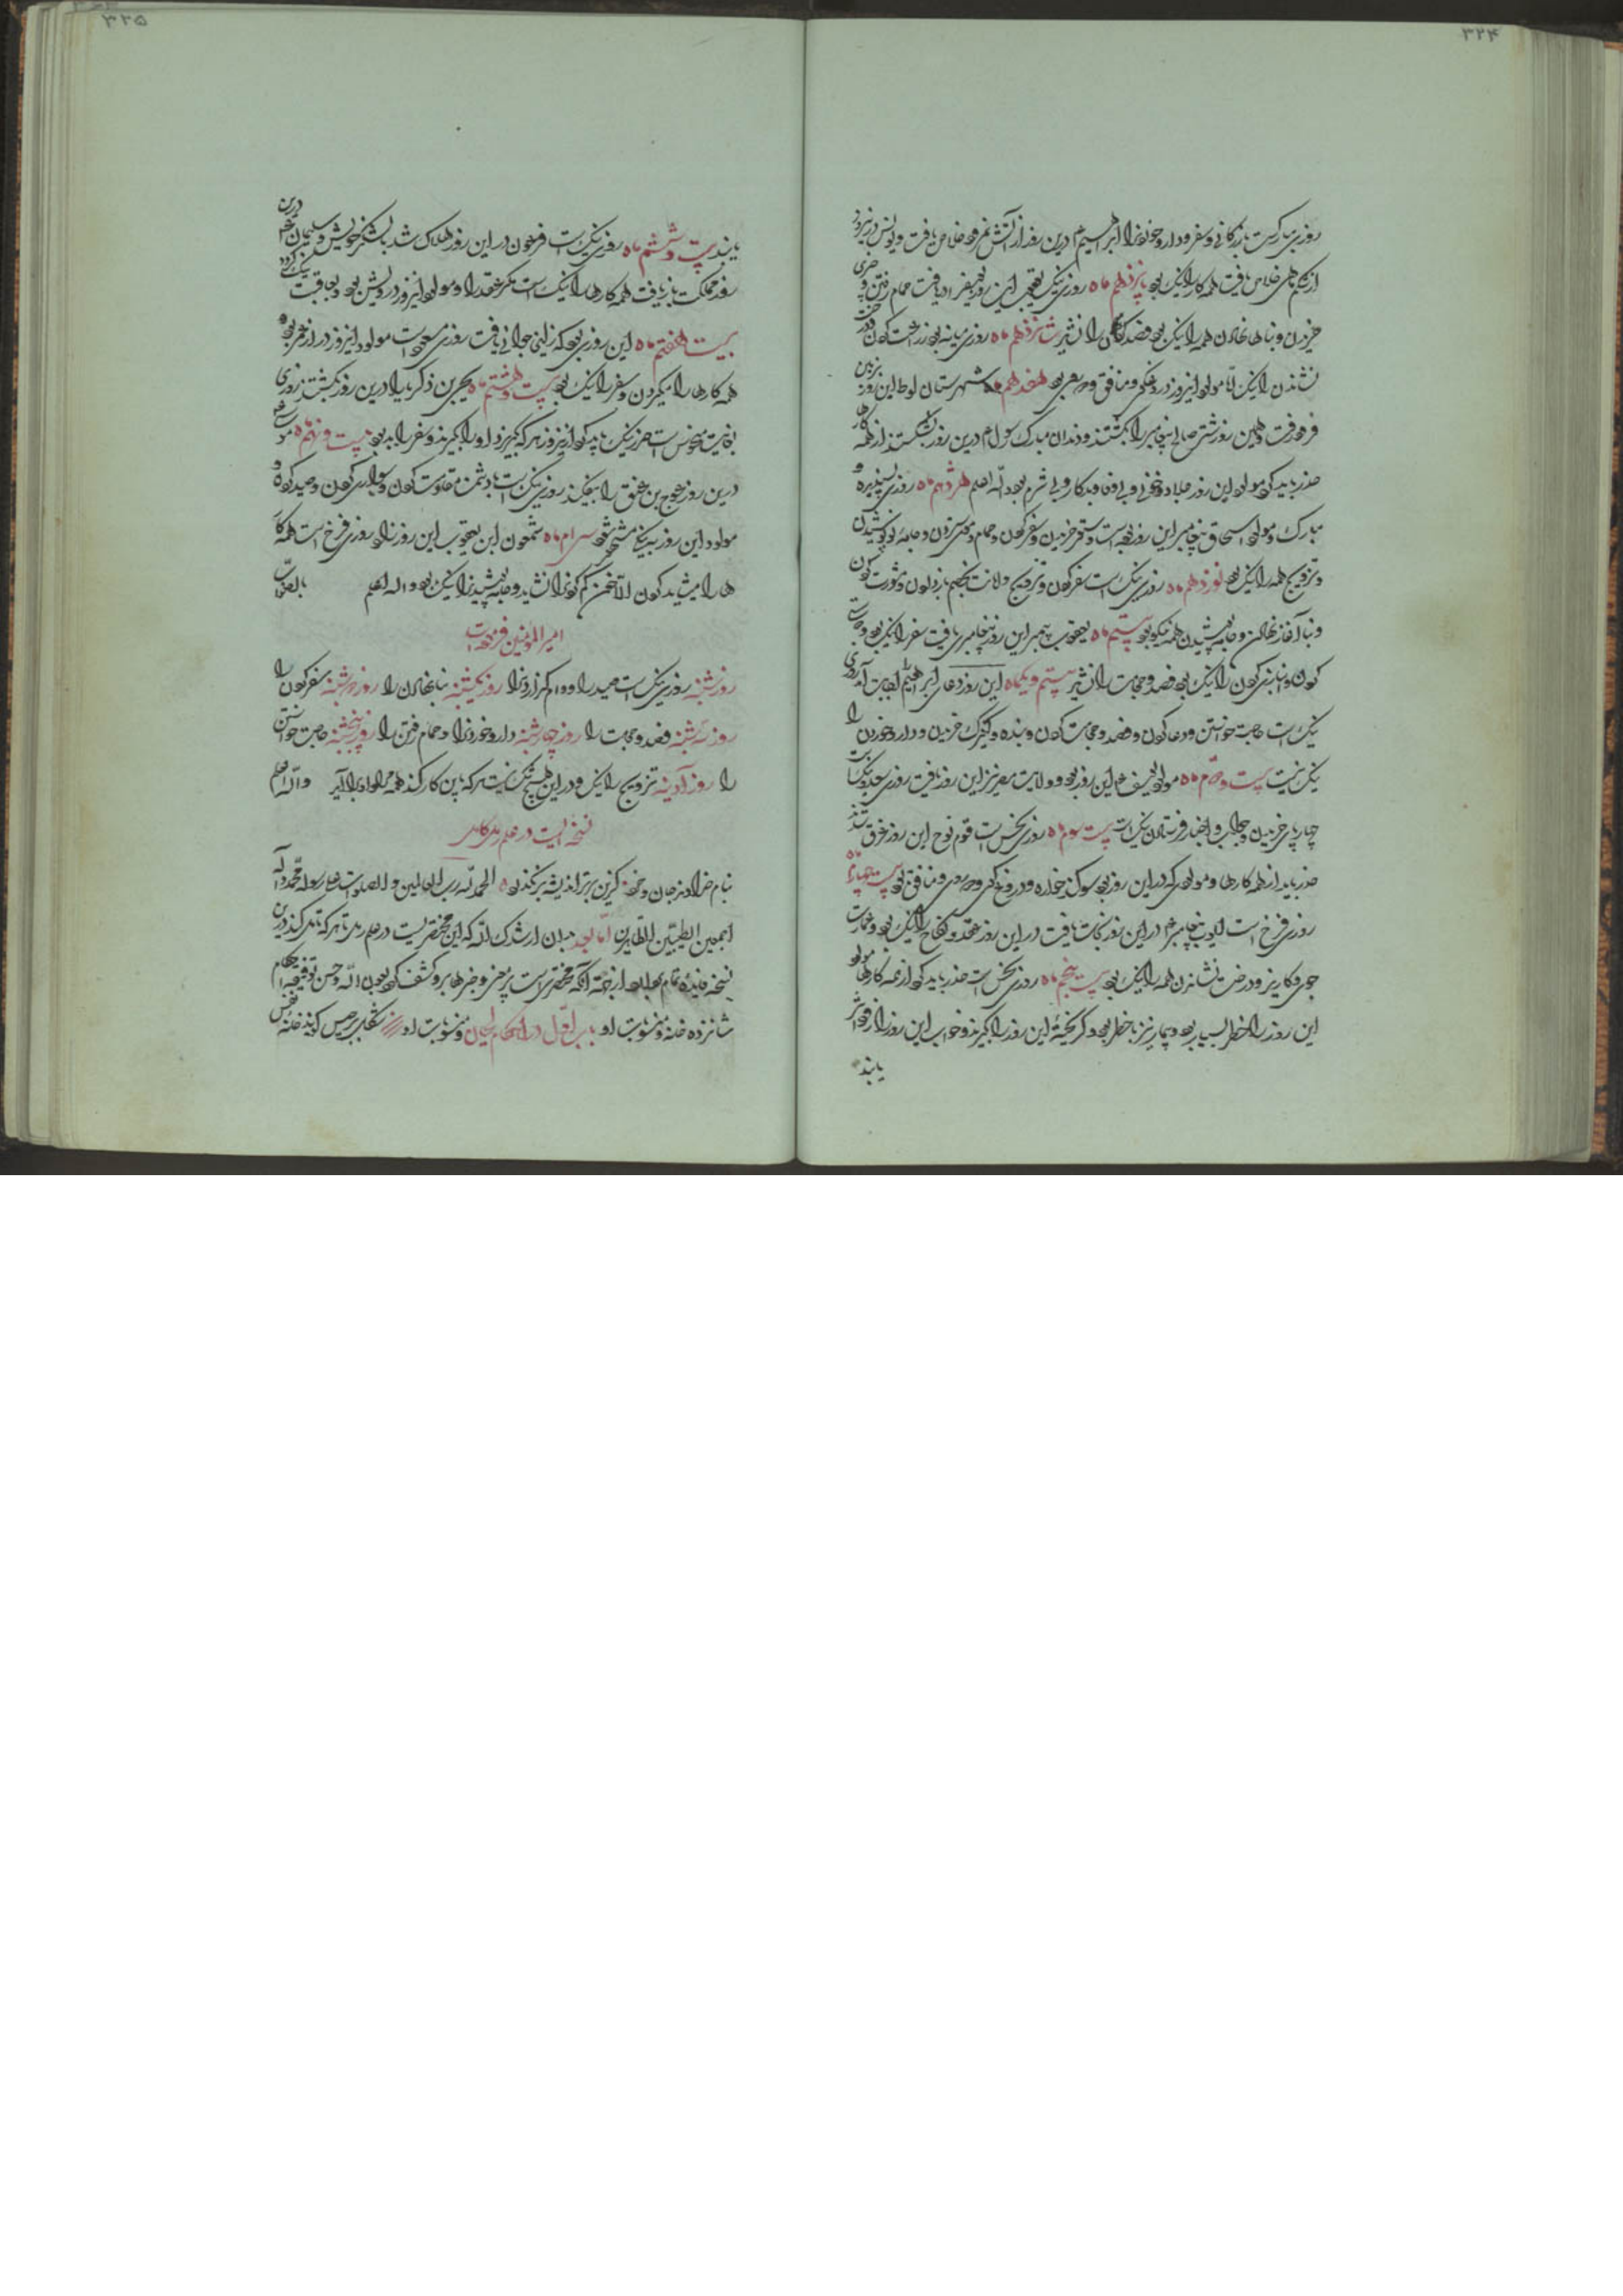 ۳۲۴
روزی مبارکست بازرگانی و سفر و دارو خوردنرا ابراهیم درین روز از آتش نمرود خلاص یافت و یونس درینروز
از شکم ماهی خلاص یافت همه کار را نیک بود پانزدهم ماه روزی نیک یعقوب این روز حمام رفتن و
خریدن و بناها نهادن همه را نیک بود فصد کردن را نشاید شانزدهم ماه روزی میانه بود درخت
نشاندن را نیک امّا مولود اینروز دروغگو و منافق بود هفدهم ماه شهرستان لوط این روز بزمین
فرو رفت و همین روز شتر صالح پیغامبر را بکشتند و دندان مبارک رسول درین روز بشکستند از همه کارها
حذر باید کرد مولود این روز جلاد و خونی و بی وفا و بدکار و بی شرم بود والله اعلم هژدهم ماه روزی پسندیده و
مبارک و مولود اسحاق پیغامبر این روز بوده است و ستور خریدن و سفر کردن و حمام و موی ستردن و جامه نو پوشیدن
و تزویج همه را نیک بود نوزدهم ماه روزی نیک است سفر کردن و تزویج و مشورت کردن
و بنا آغاز نهادن و جامه پوشیدن همه نیکو بود بیستم ماه یعقوب پیغمبر این روز پیغامبری یافت سفر را نیک بود
کردن را نیک بود فصد و حجامت را نشاید بیستم و یکماه این روز دعای ابراهیم اجابت آمد روزی
نیک است حاجت خواستن و دعا کردن و فصد و حجامت کردن و بنده و کنیزک خریدن و دارو خوردن را
نیک نیست بیست و دوم ماه مولود یوسف این روز بود و ولایت مصر نیز این روز یافت روزی سعد و نیک است
چارپای خریدن و فرستادن نیک است بیست سوم ماه روزی نحس است قوم نوح این روز غرق شدند
حذر باید از همه کارها و مولودی که در این روز بود سوگند خواره و دروغ گوی و منافق بود بیست چهارم ماه
روزی فرخ است ایوب پیغامبر در این روز نجات یافت در این روز عقد و نکاح را نیک بود و عمارت
جوی و کاریز و درخت نشاندن همه را نیک بود بیست پنجم ماه روزی نحس است حذر باید کرد از همه کارها مولود
این روز را خطر بسیار بود و بیمار نیز با خطر بود و گریخته این روز را گیرند و خواب این روز را زود اثر
یابند
۳۲۵
یابند بیست و ششم ماه روزی نیک است فرعون در این روز هلاک شد با لشکر خویش و سلیمان درین
روز مملکت بازیافت همه کارها را نیک است مگر عقد را و مولود اینروز درویش بود و بعاقبت نیک گردد
بیست هفتم ماه این روزی بود که زلیخا جوانی یافت روزی مسعود است مولود اینروز دراز عمر بود و
همه کارها را نیک کردن و سفر را نیک بود بیست و هشتم ماه یحیی بن ذکریا را درین روز بکشتند روزی
بغایت منحوس است حرز نیک باید کرد اینروز هر که گریزد او را گیرند و سفر را بد بود بیست و نهم ماه موسی
درین روز عوج بن عنق را بیفکند روزی نیک است با دشمن مقاومت کردن و سواری کردن و صید کردن و
مولود این روز به نیکی مشهور شود سی ام ماه شمعون ابن یعقوب این روز زاد روزی فرخ است همه کار
ها را میشاید کردن الّا تخمن گم کردنرا نشاید و جامه پوشیدنرا نیک بود والله اعلم بالصّواب
امیر المومنین فرموده است
روز شنبه روزی نیک است صید را و وام گزاردنرا روز یکشنبه بنا نهادن را روز دوشنبه سفر کردن را
روز سه شنبه فصد و حجامت را روز چهارشنبه دارو خوردنرا و حمام رفتن را روز پنجشنبه حاجت خواستن
را روز آدینه تزویج را نیک و در این هیچ شک نیست هر که بدین کار کند همه مراد او برآید والله اعلم
نسخه ایست در علم رمل کامل
بنام خداوند جان و خرد کزین برتر اندیشه برنگذرد الحمد لله رب العالمین و الصلوات علی رسوله محمد و آله
اجمعین الطیبین الطاهرین امّا بعد بدان ارشدک الله که این مختصریست در علم رمل تا هر که تامل کند درین
نسخه فایده تمام بیابد از جهة آنکه مختصری است پر معنی و خبرها بر او کشف گردد بعون الله و حسن توفیقه احکام
شانزده خانه و منسوبات او باب اوّل در احکام لحیان و منسوبات او شکل برجیس گویند خانه نفس